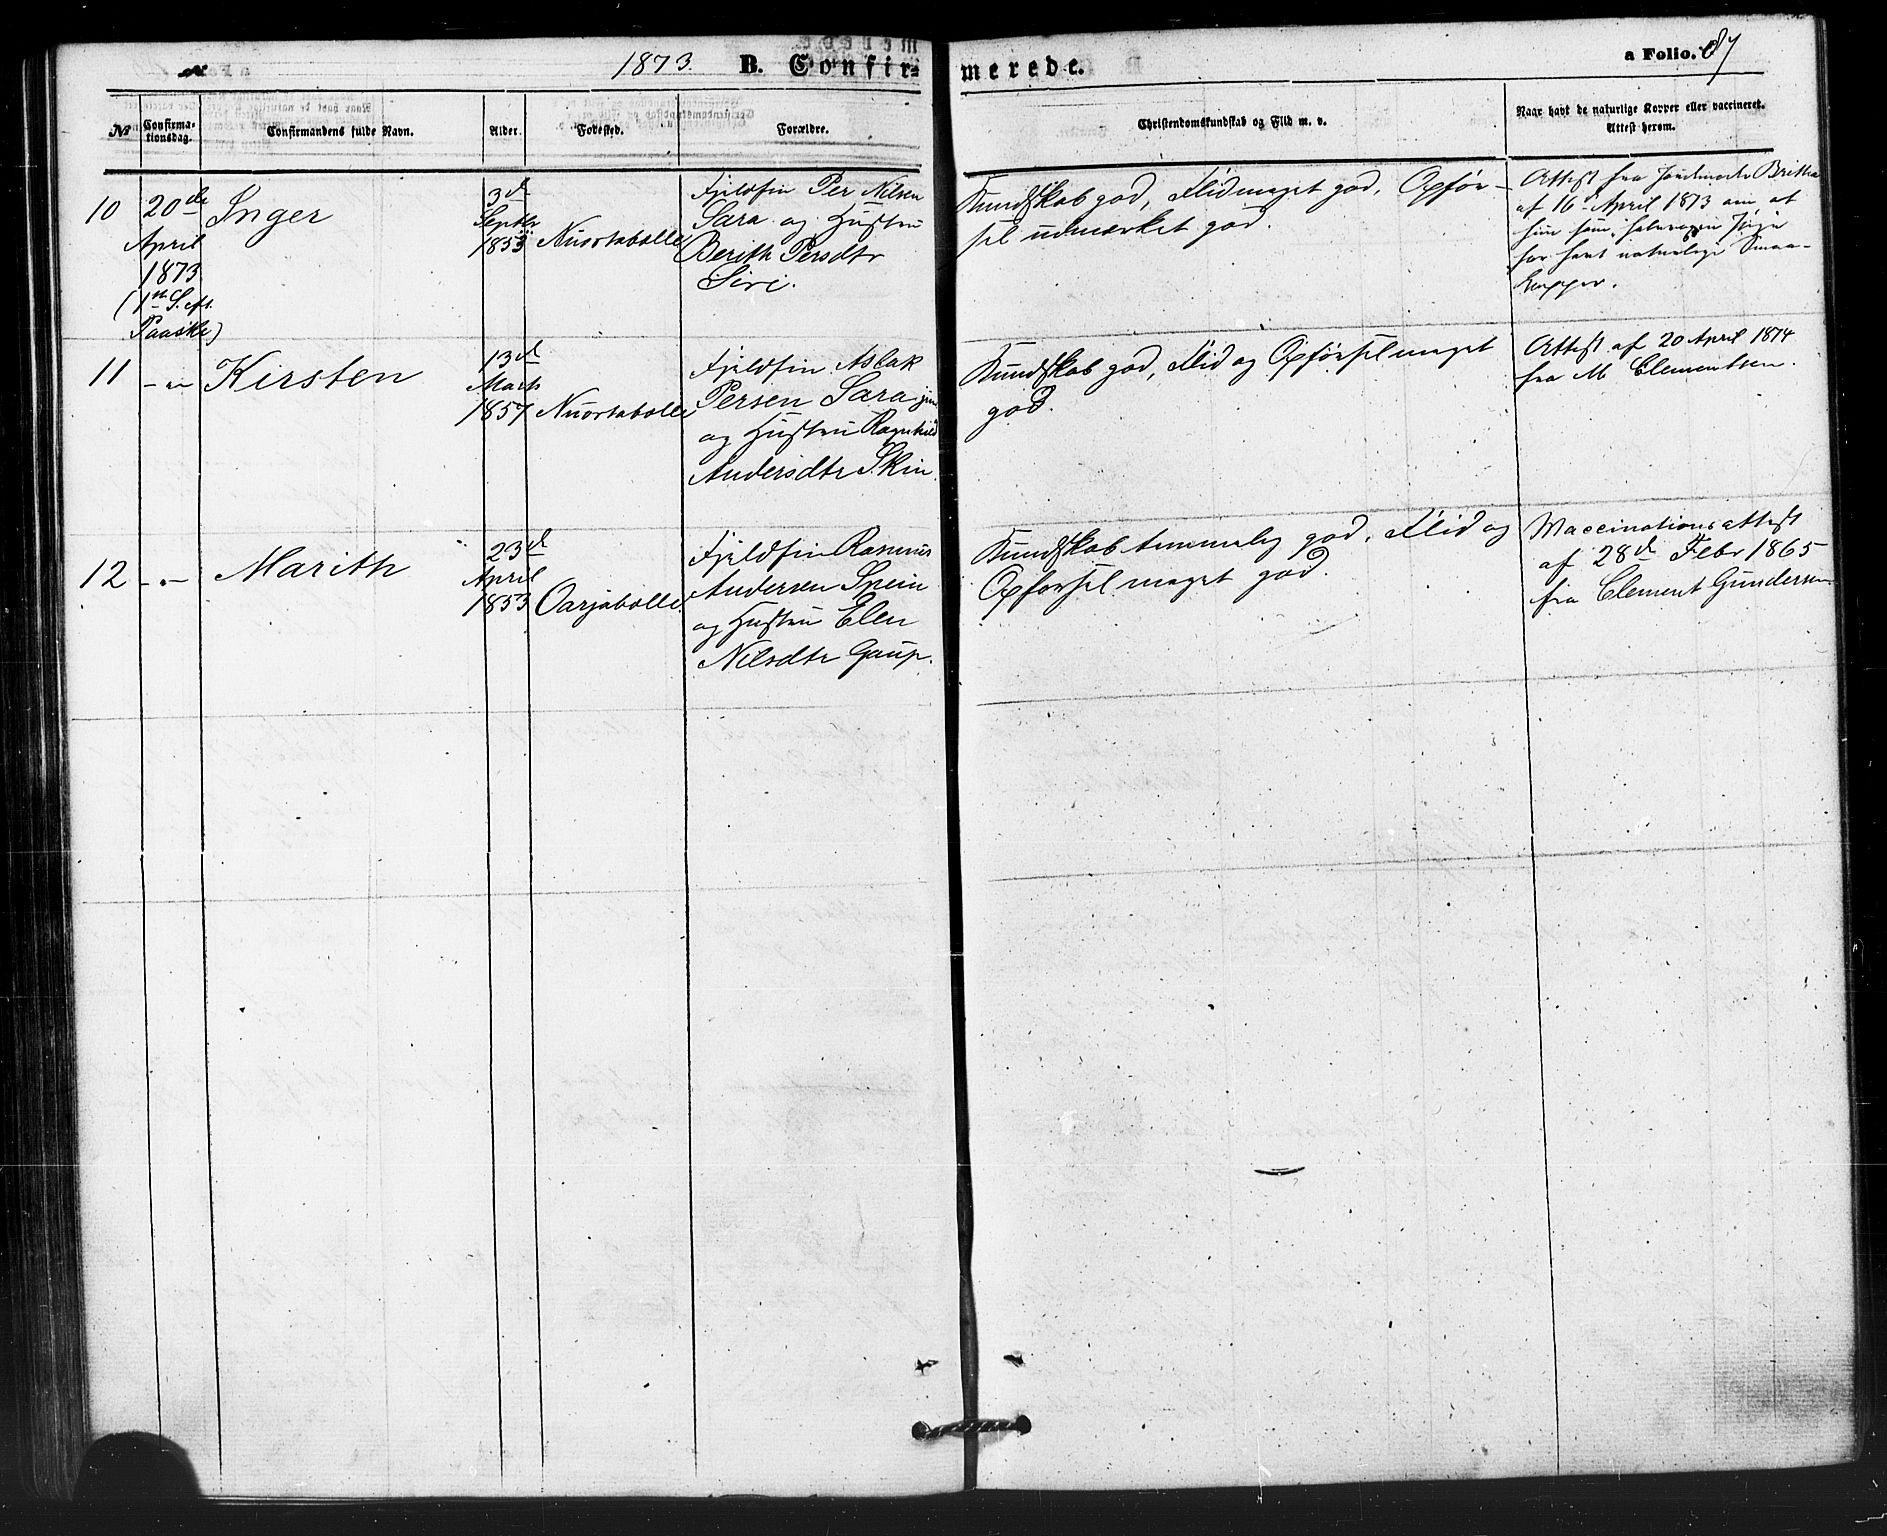 1873. B. Confirmerede. a Folio. 87
№ Confirmationsdag. Confirmandens fulde Navn. Alder. Fødested. Forældre. Christendomskundskab og Flid m. v. Naar havt de naturlige Kopper eller vaccineret. Attest herom.
10
20de
April
1873
(1ste S. eft.
Paaske)
Inger
3d
Septbr
1853
Nuortabælle
Fjeldfin Per Nilsen
Sara og Hustru
Berith Persdtr
Siri.
Kundskab god, Flid meget god, Opfør-
sel udmærket god.
Attest fra Jordmoder Britha
af 16 April 1873 om at
hun som
har havt naturlige Smaa-
kopper.
11
-"-
Kirsten
13d
Marts
1857
Nuortabælle
Fjeldfin Aslak
Persen Sara jun
og Hustru Ragnhild
Andersdtr Skin
Kundskab god, Flid og Opførsel meget
god.
Attest af 20 April 1874
fra M Clementsen.
12
-"-
Marith
23d
April
1853
Oarjabælle
Fjeldfin Rasmus
Andersen Spein
og Hustru Elen
Nilsdtr Gaup.
Kundskab temmelig god, Flid og
Opførsel meget god.
Vaccinationsattest
af 28d Febr 1865
fra Clement Gundersen